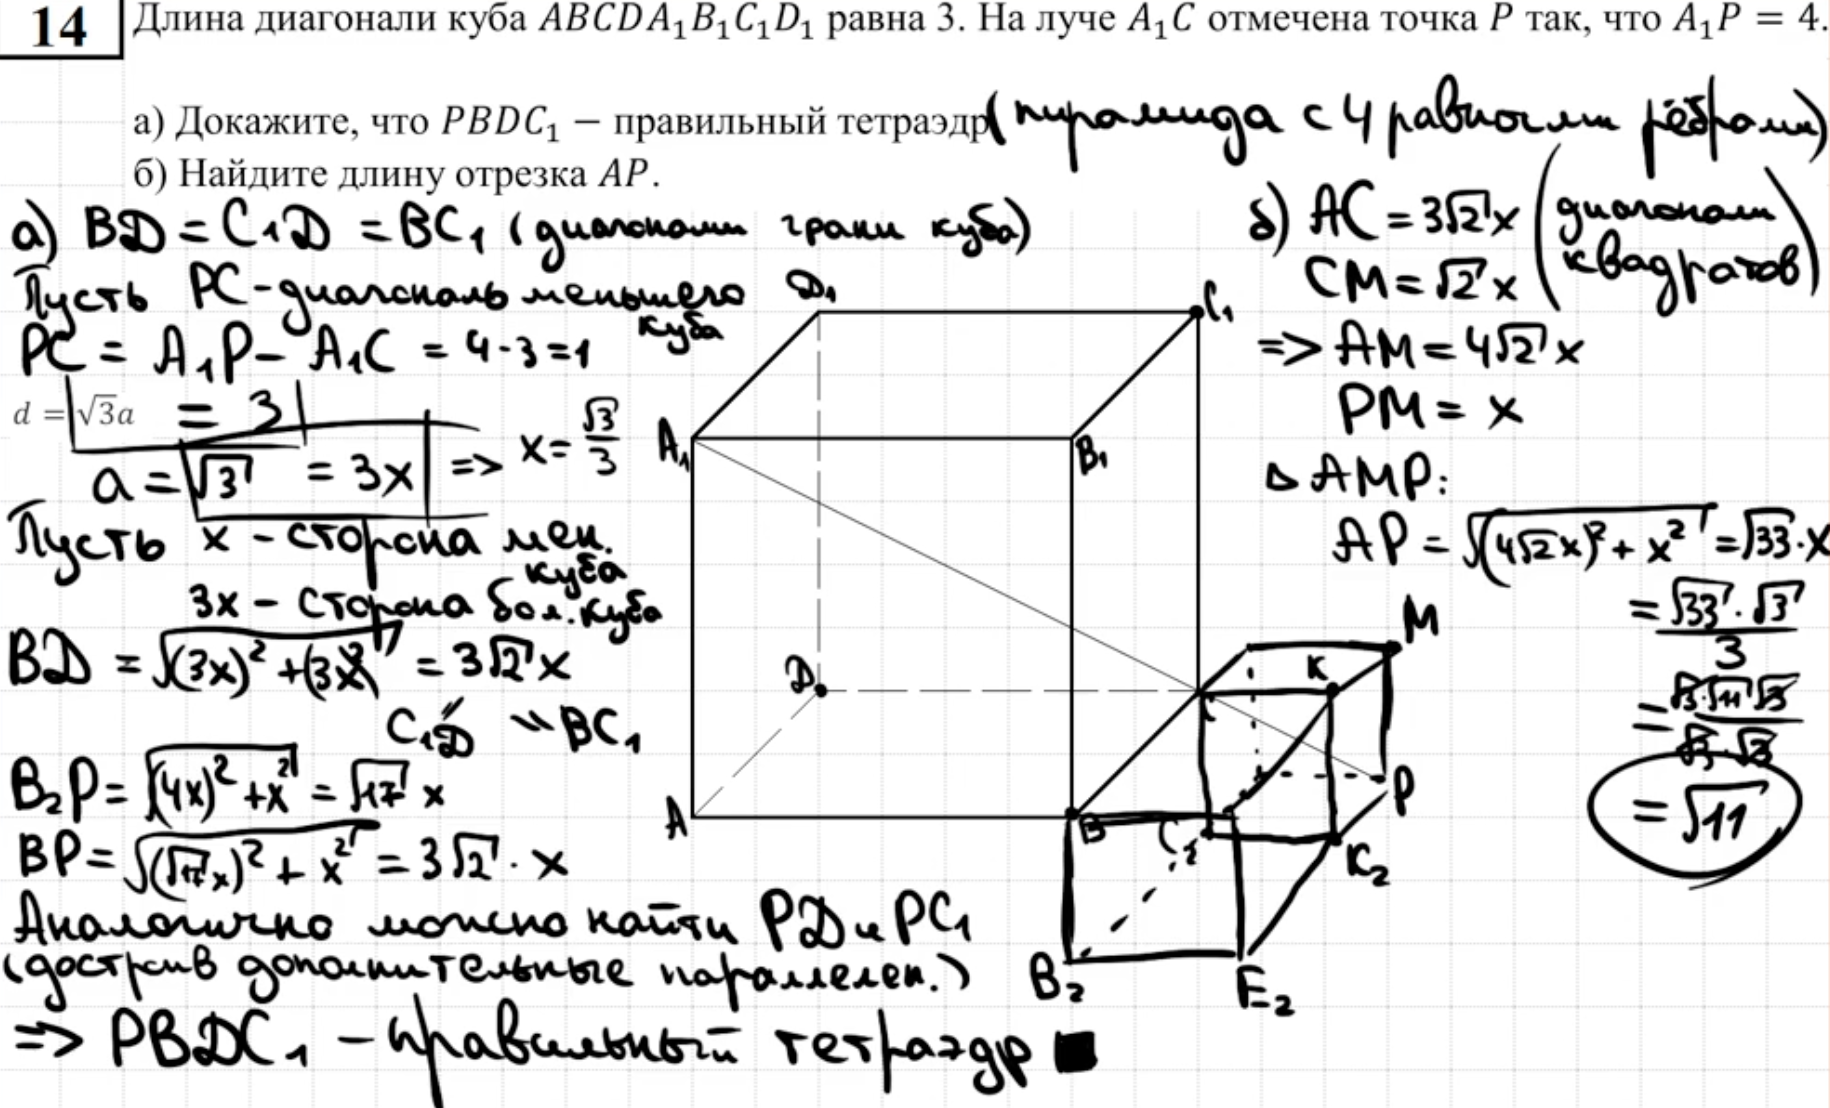 14
Длина диагонали куба ABCDA₁B₁C₁D₁ равна 3. На луче A₁C отмечена точка P так, что A₁P = 4.
а) Докажите, что PBDC₁ − правильный тетраэдр (пирамида с 4 равными рёбрами)
б) Найдите длину отрезка AP.
а) BD = C₁D = BC₁ (диагонали грани куба)
Пусть PC - диагональ меньшего куба
PC = A₁P - A₁C = 4-3=1
d = √3a = 3
a = √3 = 3x => x = √3/3
Пусть x - сторона мен. куба
3x - сторона бол. куба
BD = √((3x)² + (3x)²) = 3√2 x
C₁D " BC₁
B₂P = √((4x)² + x²) = √17 x
BP = √((√17x)² + x²) = 3√2 · x
Аналогично можно найти PD и PC₁
(достроив дополнительные параллелеп.)
=> PBDC₁ - правильный тетраэдр ■
б) AC = 3√2 x (диагонали квадратов)
CM = √2 x
=> AM = 4√2 x
PM = x
△AMP:
AP = √((4√2x)² + x²) = √33 · x
= √33 · √3 / 3
= √3·√11·√3 / √3·√3
= √11
D₁
C₁
A₁
B₁
M
K
D
C
P
A
B
C₂
K₂
B₂
E₂